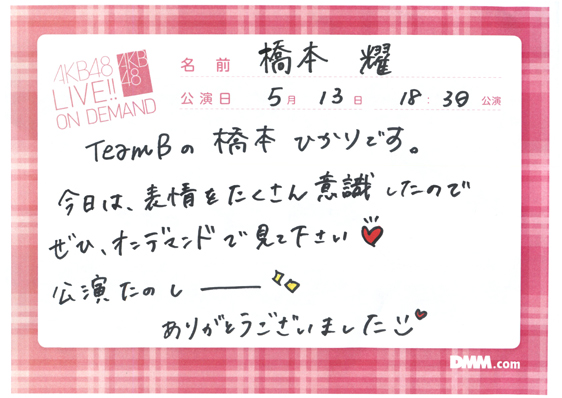 AKB48
LIVE!!
ON DEMAND
AKB
48
名前 橋本 耀
公演日 5月 13日 18:30 公演
TeamBの橋本ひかりです。
今日は、表情をたくさん意識したので
ぜひ、オンデマンドで見て下さい
公演たのしーーー
ありがとうございました
DMM.com